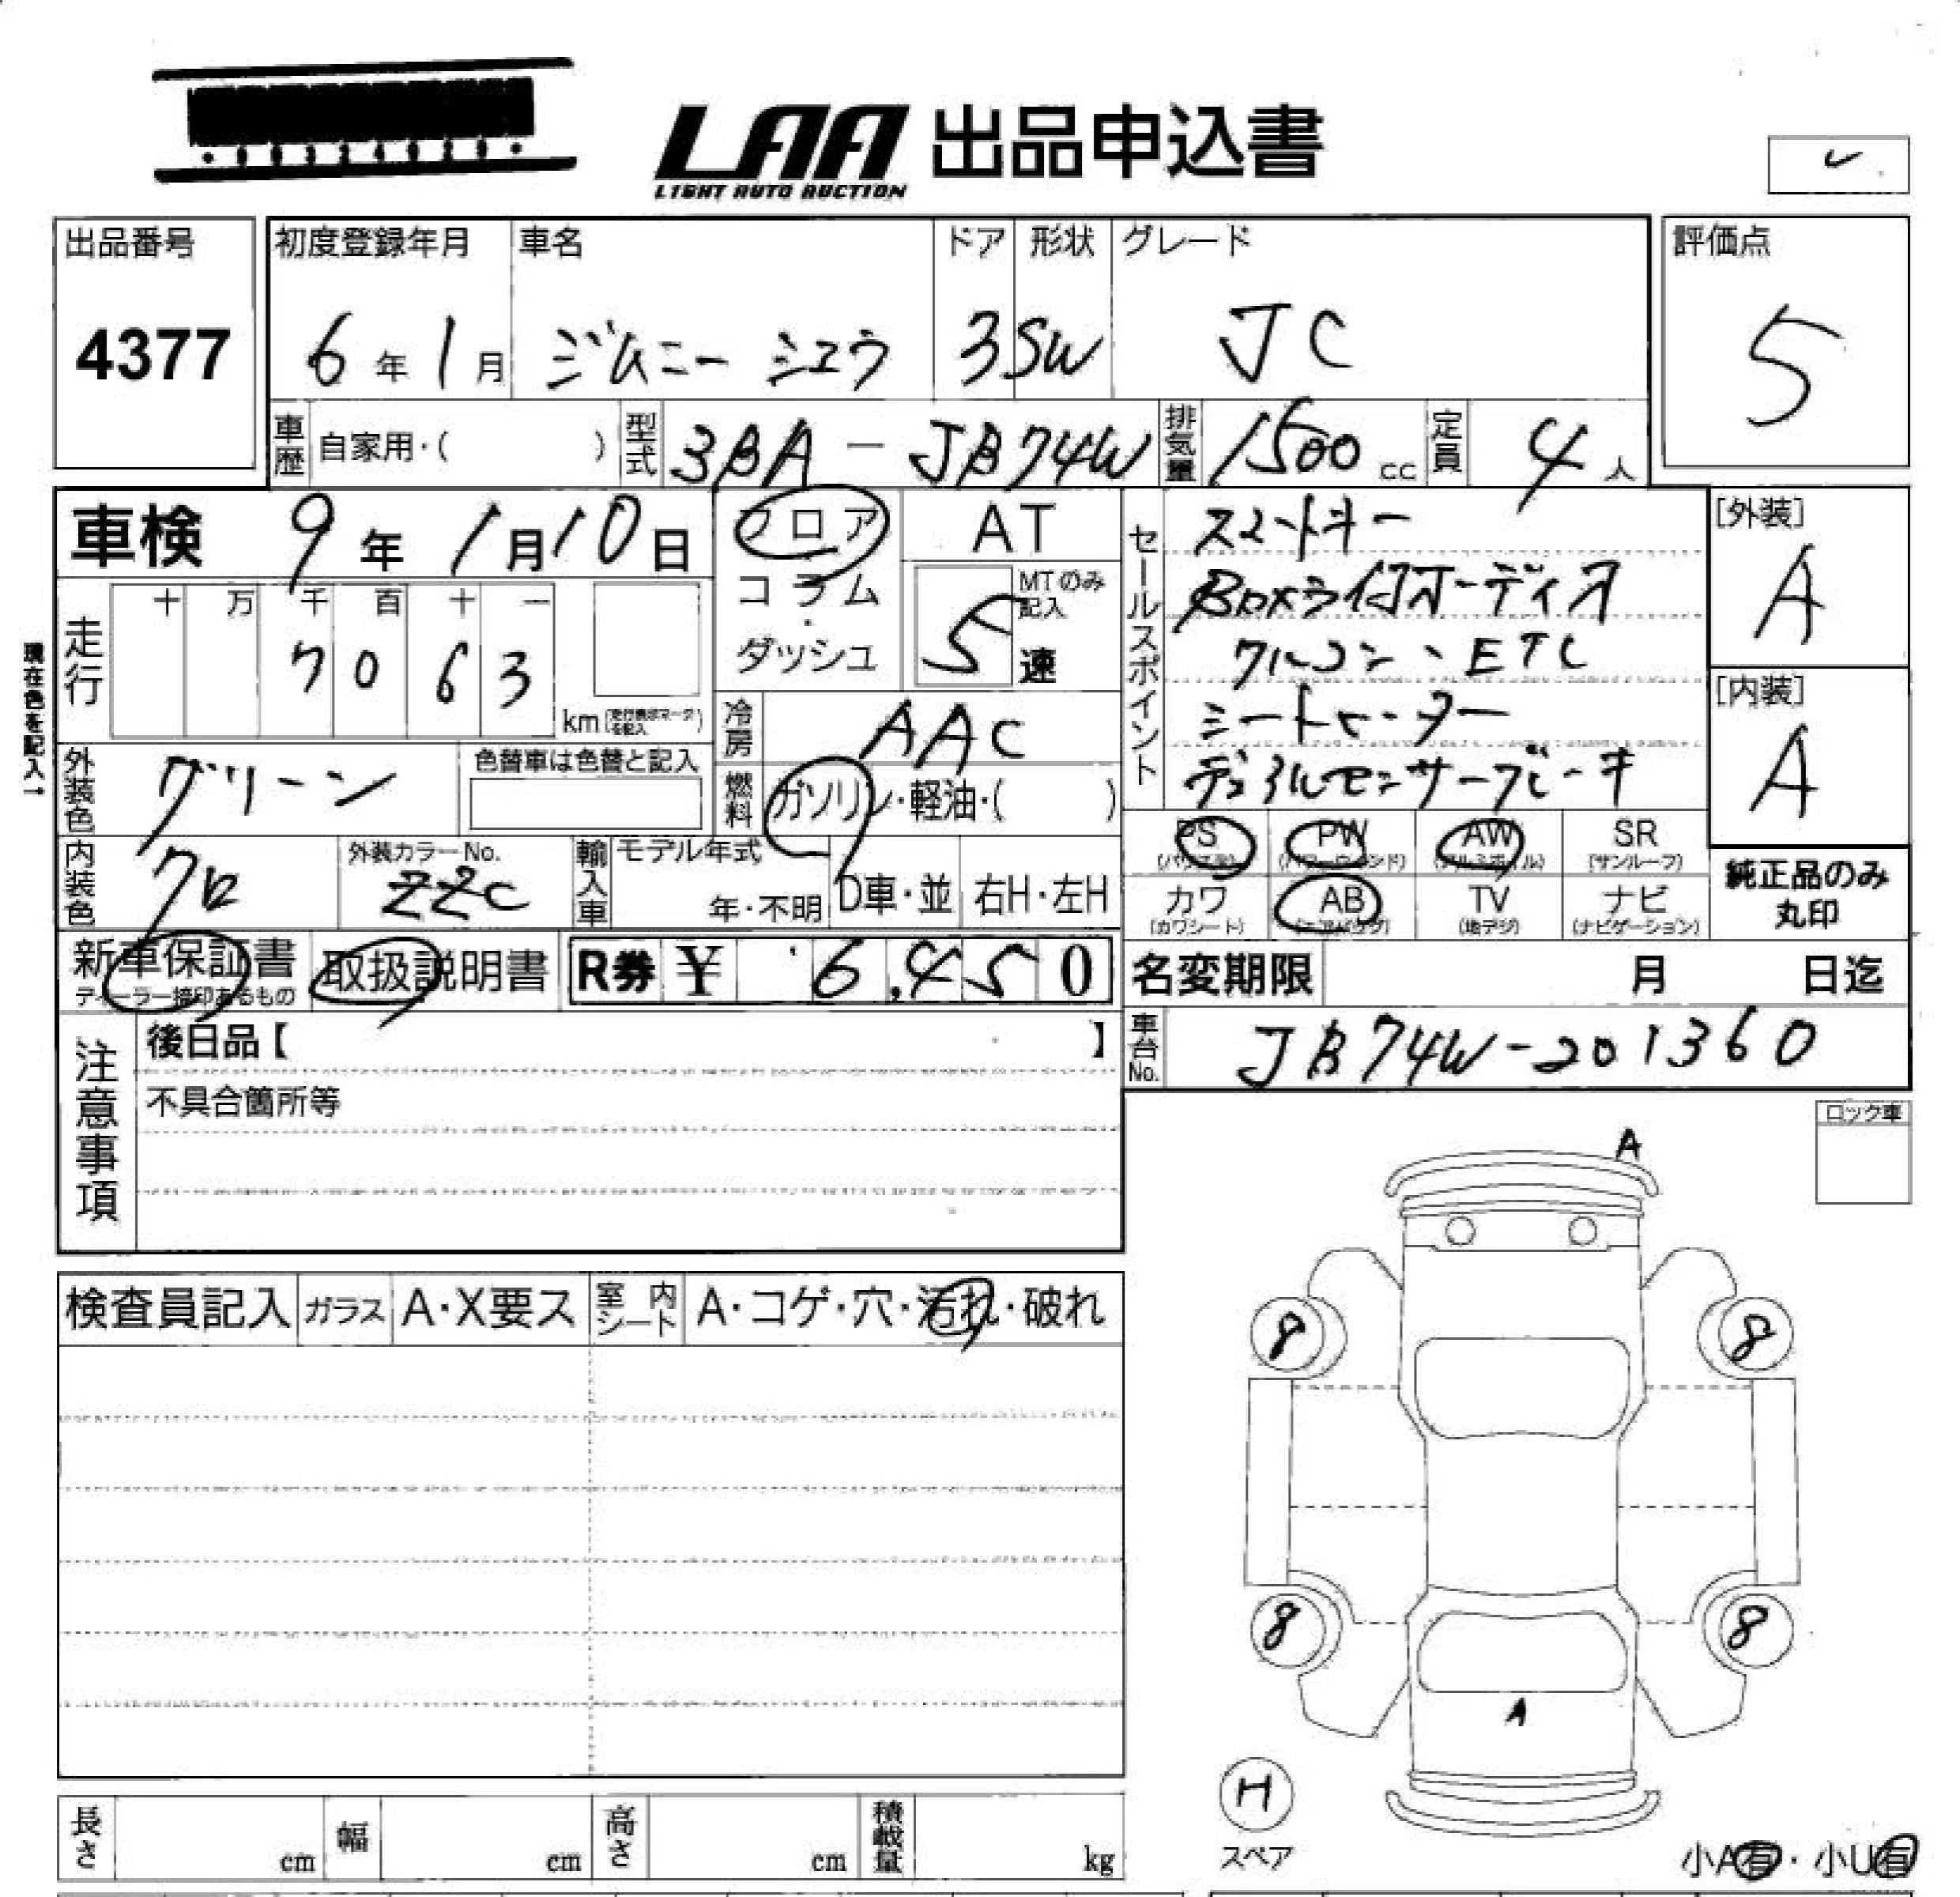 LAA 出品申込書
LIGHT AUTO AUCTION
出品番号 初度登録年月 車名 ドア 形状 グレード 評価点
4377 6年 1月 ジムニーシエラ 3 SW JC 5
車歴 自家用・( ) 型式 3BA-JB74W 排気量 1500cc 定員 4人
車検 9年 1月10日 フロア・コラム・ダッシュ AT
MTのみ記入 5速
走行 十 万 千 百 十 一
7 0 6 3 km (走行表示マークを記入)
現在色を記入→
外装色 グリーン 色替車は色替と記入
冷房 AAC
燃料 ガソリン・軽油・( )
内装色 クロ 外装カラーNo. ZZC 輸入車 モデル年式 年・不明 D車・並 右H・左H
セールスポイント スマートキー
Boxライ付オーディオ
クルコン、ETC
シートヒーター
デュアルセンサーブレーキ
[外装] A
[内装] A
PS (パワステ) PW (パワーウインド) AW (アルミホイル) SR (サンルーフ)
カワ (カワシート) AB (エアバッグ) TV (地デジ) ナビ (ナビゲーション)
純正品のみ丸印
新車保証書 ディーラー捺印あるもの 取扱説明書 R券 ¥ 6,450
名変期限 月 日迄
車台No. JB74W-201360
注意事項 後日品【 】
不具合箇所等
ロック車
A
検査員記入 ガラス A・X要ス 室内シート A・コゲ・穴・汚れ・破れ
8 8
8 8
A
H
スペア
長さ cm 幅 cm 高さ cm 積載量 kg
小A有・小U有